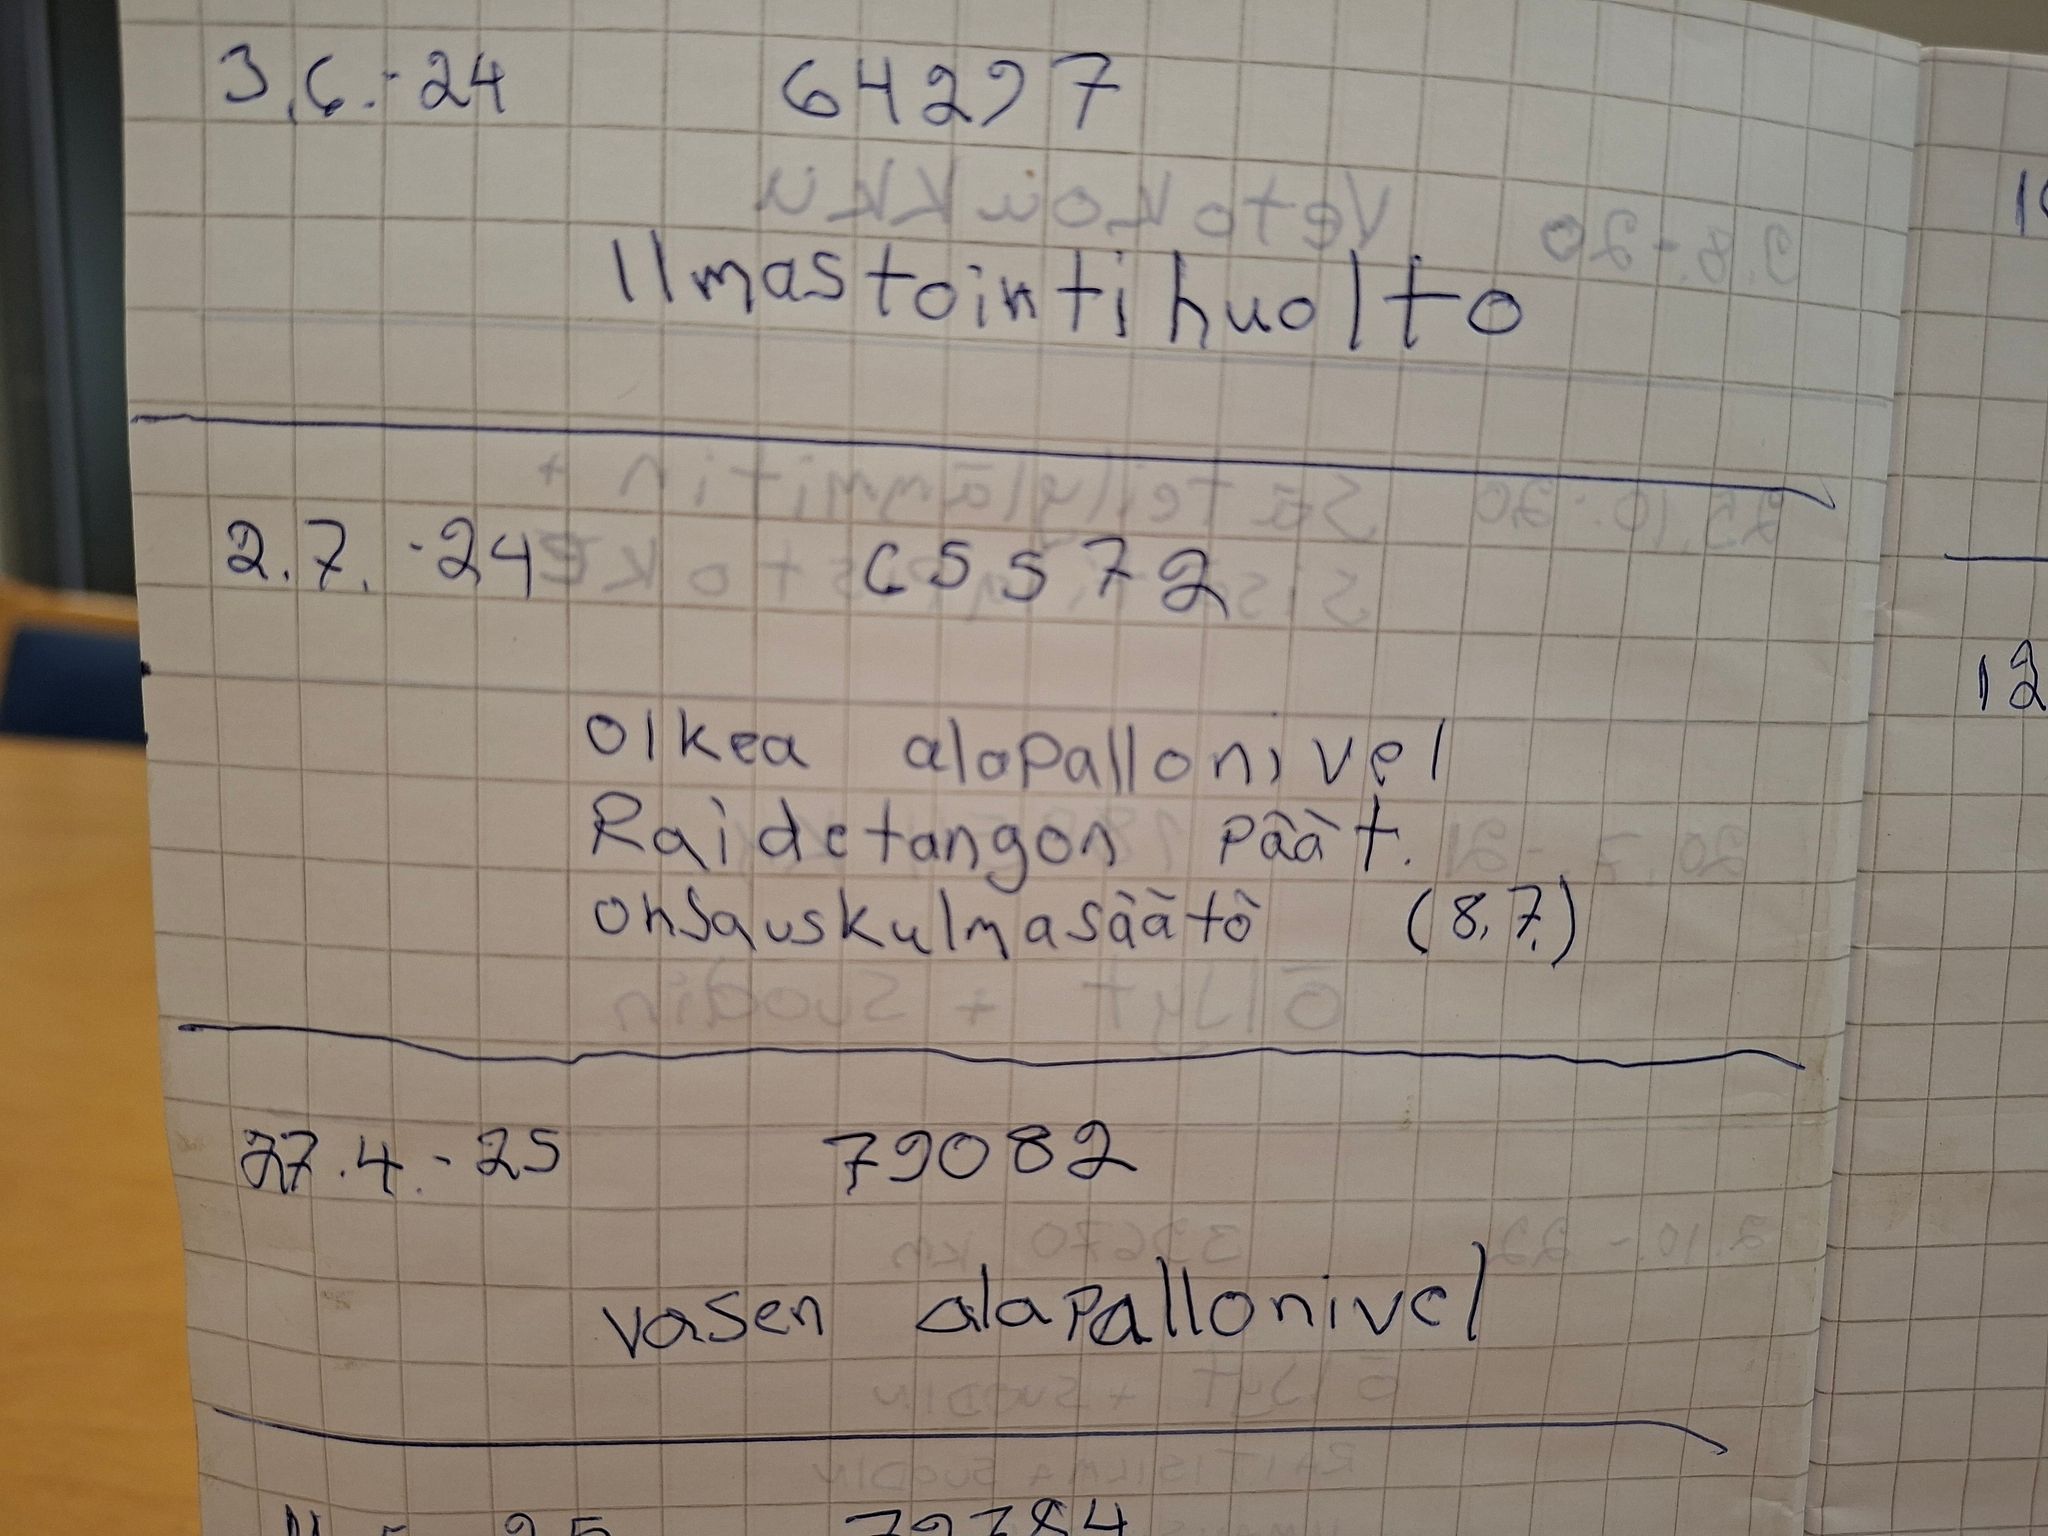 3.6.-24 64297
Ilmastointihuolto
2.7.-24 65572
Oikea alapallonivel
Raidetangon päät.
Ohjauskulmasäätö (8.7.)
27.4.-25 79082
vasen alapallonivel